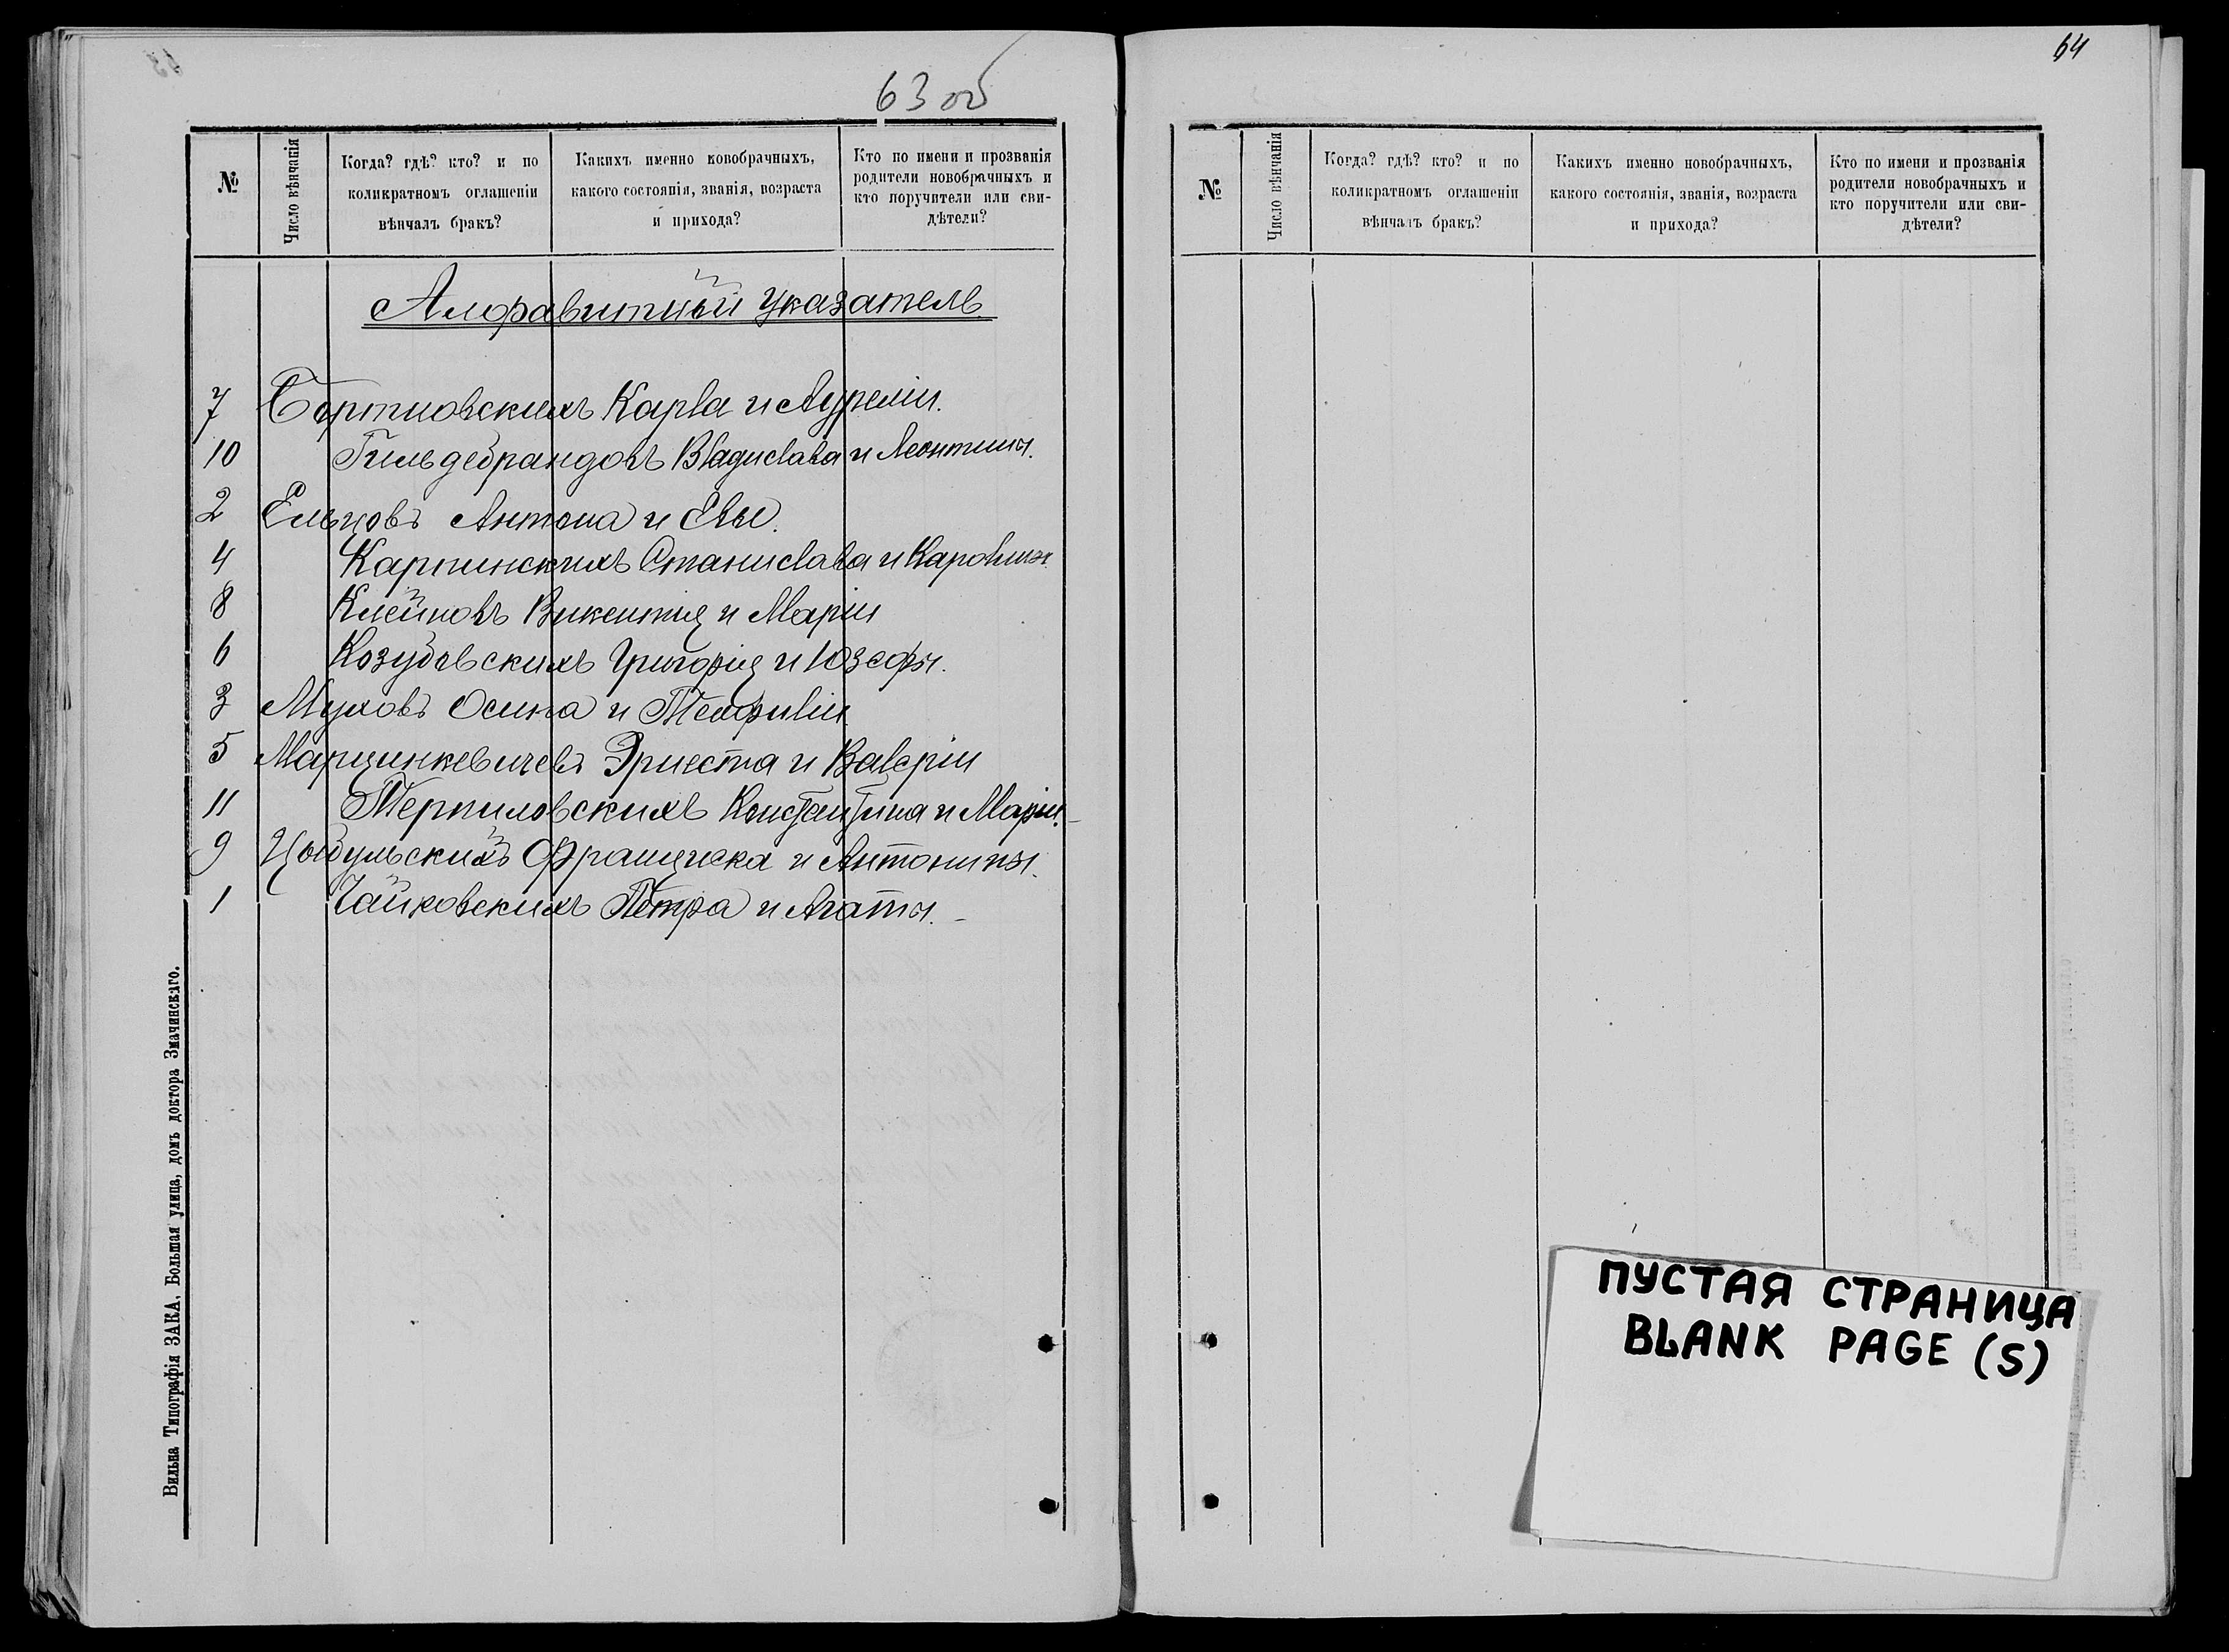 63 об
№
Число вѣнчанія
Когда? гдѣ? кто? и по
коликратномъ оглашеніи
вѣнчалъ бракъ?
Какихъ именно новобрачныхъ,
какого состоянія, званія, возраста
и прихода?
Кто по имени и прозванія
родители новобрачныхъ и
кто поручители или сви-
дѣтели?
Алфавитный указатель
7 Бортновскихъ Карла и Аурелии.
10 Гильдебрандовъ Владислава и Леонтины.
2 Ельцовъ Антона и Евы.
4 Карпинскихъ Станислава и Каролины
8 Клейновъ Викентия и Маріи
6 Козубовскихъ Григорія и Юзефы.
3 Муховъ Осипа и Теофиліи
5 Марцинкевичевъ Эрнеста и Валеріи
11 Терпиловскихъ Константина и Маріи.
9 Цыбульскихъ Франциска и Антонины.
1 Чайковскихъ Петра и Агаты.
Вильна Типографія ЗАКА, Большая улица, домъ доктора Змачинскаго.
64
№
Число вѣнчанія
Когда? гдѣ? кто? и по
коликратномъ оглашеніи
вѣнчалъ бракъ?
Какихъ именно новобрачныхъ,
какого состоянія, званія, возраста
и прихода?
Кто по имени и прозванія
родители новобрачныхъ и
кто поручители или сви-
дѣтели?
ПУСТАЯ СТРАНИЦА
BLANK PAGE (S)